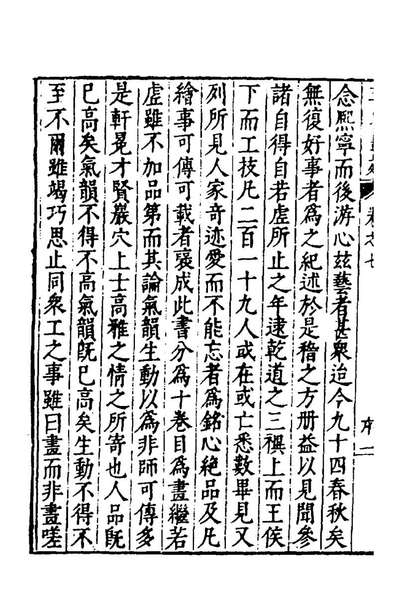 念熙寧而後游心茲藝者甚衆迨今九十四春秋矣
無復好事者爲之紀述於是稽之方册益以見聞參
諸自得自若虚所止之年逮乾道之三禩上而王侯
下而工技凡二百一十九人或在或亡悉數畢見又
列所見人家奇迹愛而不能忘者爲銘心絶品及凡
繪事可傳可載者裒成此書分爲十卷目爲畫繼若
虚雖不加品第而其論氣韻生動以爲非師可傳多
是軒冕才賢巖穴上士高雅之情之所寄也人品既
已高矣氣韻不得不高氣韻既已高矣生動不得不
至不爾雖竭巧思止同衆工之事雖曰畫而非畫嗟